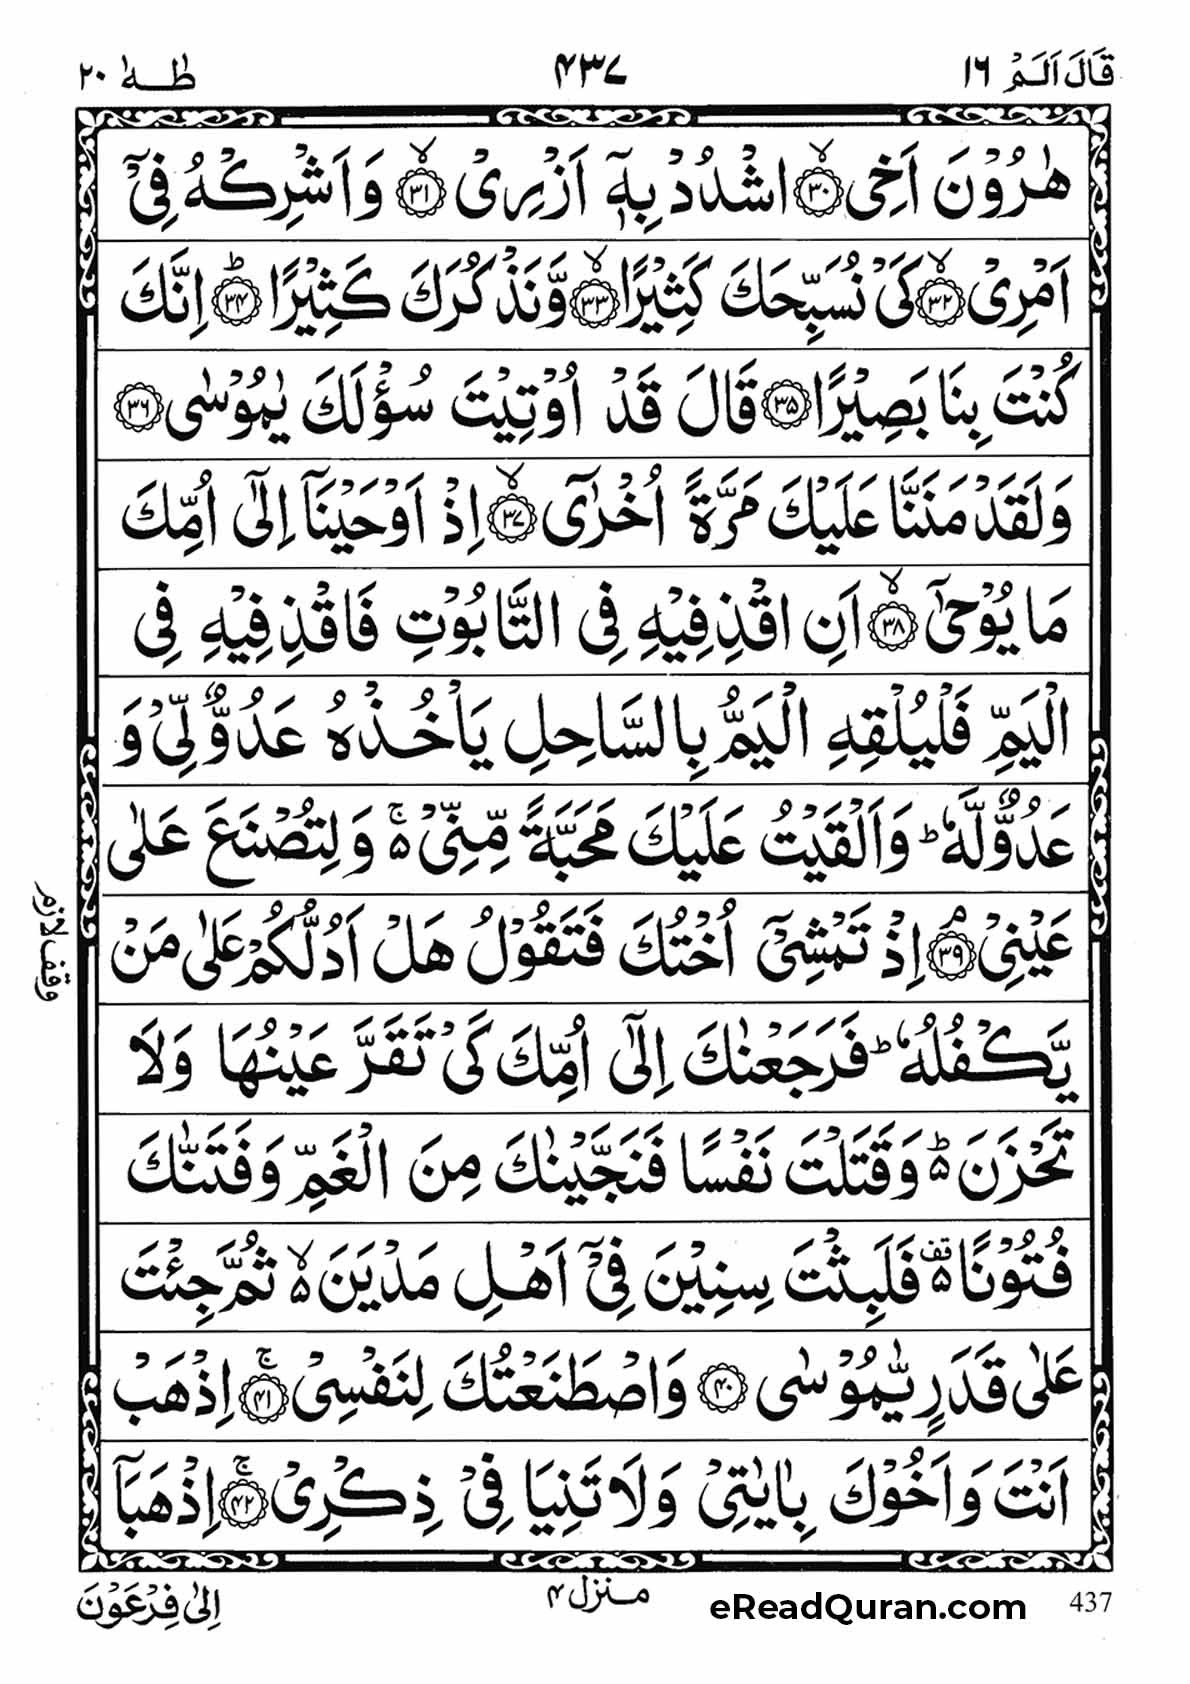 قَالَ اَلَمْ ١٦
٤٣٧
طٰهٰ ٢٠
هٰرُوْنَ اَخِى ﴿٣٠﴾ۙ اشْدُدْ بِهٖٓ اَزْرِىْ ﴿٣١﴾ۙ وَاَشْرِكْهُ فِىْٓ
اَمْرِىْ ﴿٣٢﴾ۙ كَىْ نُسَبِّحَكَ كَثِيْرًا ﴿٣٣﴾ۙ وَّنَذْكُرَكَ كَثِيْرًا ﴿٣٤﴾ؕ اِنَّكَ
كُنْتَ بِنَا بَصِيْرًا ﴿٣٥﴾ قَالَ قَدْ اُوْتِيْتَ سُؤْلَكَ يٰمُوْسٰى ﴿٣٦﴾
وَلَقَدْ مَنَنَّا عَلَيْكَ مَرَّةً اُخْرٰٓى ﴿٣٧﴾ۙ اِذْ اَوْحَيْنَآ اِلٰٓى اُمِّكَ
مَا يُوْحٰٓى ﴿٣٨﴾ۙ اَنِ اقْذِفِيْهِ فِى التَّابُوْتِ فَاقْذِفِيْهِ فِى
الْيَمِّ فَلْيُلْقِهِ الْيَمُّ بِالسَّاحِلِ يَاْخُذْهُ عَدُوٌّ لِّىْ وَ
عَدُوٌّ لَّهٗؕ وَاَلْقَيْتُ عَلَيْكَ مَحَبَّةً مِّنِّىْ ۵ۚ وَلِتُصْنَعَ عَلٰى
عَيْنِىْ ﴿٣٩﴾ۘ اِذْ تَمْشِىْٓ اُخْتُكَ فَتَقُوْلُ هَلْ اَدُلُّكُمْ عَلٰى مَنْ
وقف لازم
يَّكْفُلُهٗؕ فَرَجَعْنٰكَ اِلٰٓى اُمِّكَ كَىْ تَقَرَّ عَيْنُهَا وَلَا
تَحْزَنَ ۵ؕ وَقَتَلْتَ نَفْسًا فَنَجَّيْنٰكَ مِنَ الْغَمِّ وَفَتَنّٰكَ
فُتُوْنًا ۵قف فَلَبِثْتَ سِنِيْنَ فِىْٓ اَهْلِ مَدْيَنَ ۵ۙ ثُمَّ جِئْتَ
عَلٰى قَدَرٍ يّٰمُوْسٰى ﴿٤٠﴾ وَاصْطَنَعْتُكَ لِنَفْسِىْ ﴿٤١﴾ۚ اِذْهَبْ
اَنْتَ وَاَخُوْكَ بِاٰيٰتِىْ وَلَا تَنِيَا فِىْ ذِكْرِىْ ﴿٤٢﴾ۚ اِذْهَبَآ
437
eReadQuran.com
منزل ٤
اِلٰى فِرْعَوْنَ